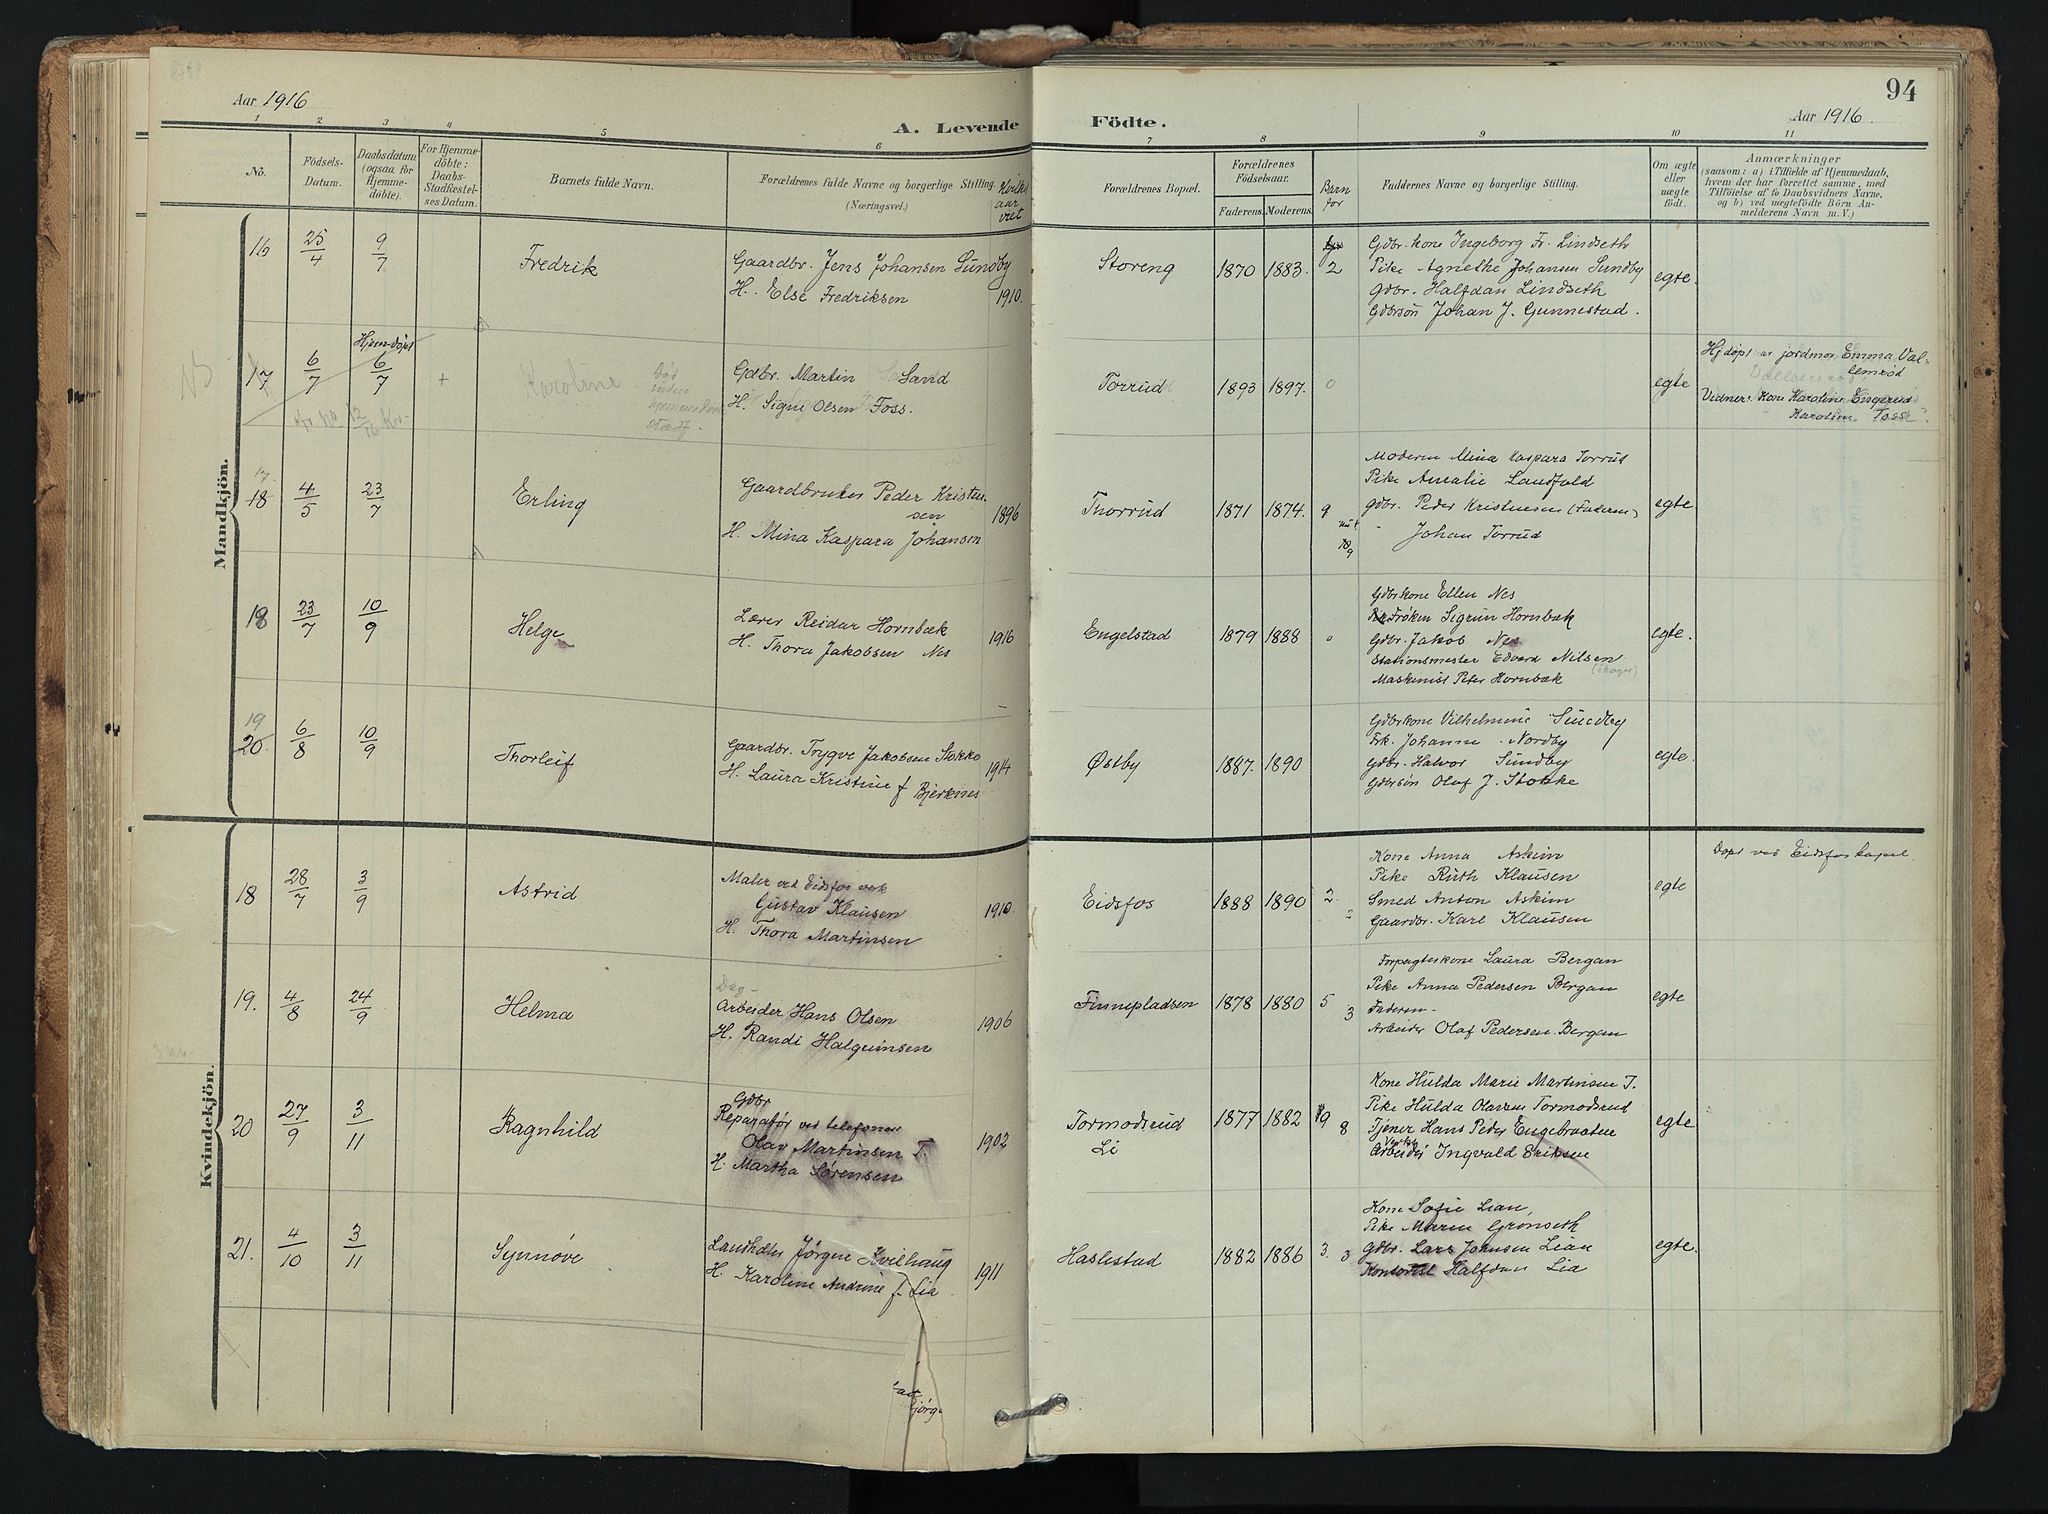 94
Aar 1916
Aar 1916.
A. Levende Födte.
1 2 3 4 5 6 7 8 9 10 11
No.
Födsels-
Datum.
Daabsdatum
(ogsaa for
Hjemme-
döbte).
For Hjemme-
döbte:
Daabs-
Stadfæstel-
ses Datum.
Barnets fulde Navn.
Forældrenes fulde Navne og borgerlige Stilling.
(Næringsvei.)
aar
viet
Forældrenes Bopæl.
Forældrenes
Födselsaar.
Faderens. Moderens.
Barn
for
Faddernes Navne og borgerlige Stilling.
Om ægte
eller
uægte
födt.
Anmærkninger
(saasom: a) i Tilfælde af Hjemmedaab,
hvem der har forrettet samme, med
Tilföielse af to Daabsvidners Navne,
og b) ved uægtefödte Börn An-
melderens Navn m. V.)
Mandkjön.
16 25/4 9/7 Fredrik
Gaardbr. Jens Johansen Sundby
H. Else Fredriksen 1910.
Storeng 1870 1883. 2
Gdbr. kone Ingeborg Fr. Lindseth
Pike Agnethe Johansen Sundby
Gdbr. Halfdan Lindseth
Gdbrsön Johan J. Gunnestad.
egte.
17 6/7 Hjem-döpt 6/7 + Karoline
Gdbr. Martin Sand
H. Signe Olsen Foss.
Torrud 1893 1897. 0
egte
Hjdöpt av jordmor Emma Val-
lemröd
Vidner: Kone Karoline Engerud
Karoline Foss
17.
18 4/5 23/7 Erling
Gaardbruker Peder Kristen-
sen 1896
H. Mina Kaspara Johansen
Thorrud 1871 1874. 9
Moderen Mina Kaspara Torrud
Pike Amalie Landfald
Gdbr. Peder Kristensen (Faderen)
Johan Torrud
egte
18 23/7 10/9 Helge
Lærer Reidar Hornbæk
H. Thora Jakobsen Nes 1916
Engelstad 1879 1888 0
Gdbrkone Ellen Nes
Frøken Sigrun Hornbæk
Gdbr. Jakob Nes
Stationsmester Edvard Nilsen
Maskinist Peter Hornbæk
egte.
19
20 6/8 10/9 Thorleif
Gaardbr. Trygve Jakobsen Stokke
H. Laura Kristine f Bjerknes 1914
Østby 1887. 1890
Gdbrkone Vilhelmine Sundby
Frk. Johanne Nordby
Gdbr. Halvor Sundby
Gdbrsön Olaf J. Stokke
egte.
Kvindekjön.
18 28/7 3/9 Astrid
Maler ved Eidsfos verk
Gustav Klausen
H. Thora Martinsen 1910.
Eidsfos 1888 1890 2. 2
Kone Anna Askim
Pike Ruth Klausen
Smed Anton Askim
Gaardbr. Karl Klausen
egte
Døpt ved Eidsfos kapel.
19. 4/8 24/9 Helma
Dag-
Arbeider Hans Olsen
H. Randi Halgrimsen 1906
Finnepladsen 1878 1880 5 3
Forpagterkone Laura Bergan
Pike Anna Pedersen Bergan
Faderen
Arbeider Olaf Pedersen Bergan
egte
20 27/9 3/11 Ragnhild
Gdbr
Reparatør ved telefonen
Olav Martinsen T.
H. Martha Sørensen 1902
Tormodsrud
Li
1877 1882 9 8
Kone Hulda Marie Martinsen T.
Pike Hulda Olavsen Tormodsrud
Tjener Hans Peder Engebraaten
Verks
Arbeider Ingvald Eriksen
egte
21. 4/10 3/11 Synnøve
Landhdler Jørgen Kvilhaug
H. Karoline Andrine f. Lia 1911
Haslestad 1882 1886 3. 3
Kone Sofie Lian,
Pike Maren Grønseth
Gdbr. Lars Johnsen Lian
Kontorist Halfdan Lia
egte.